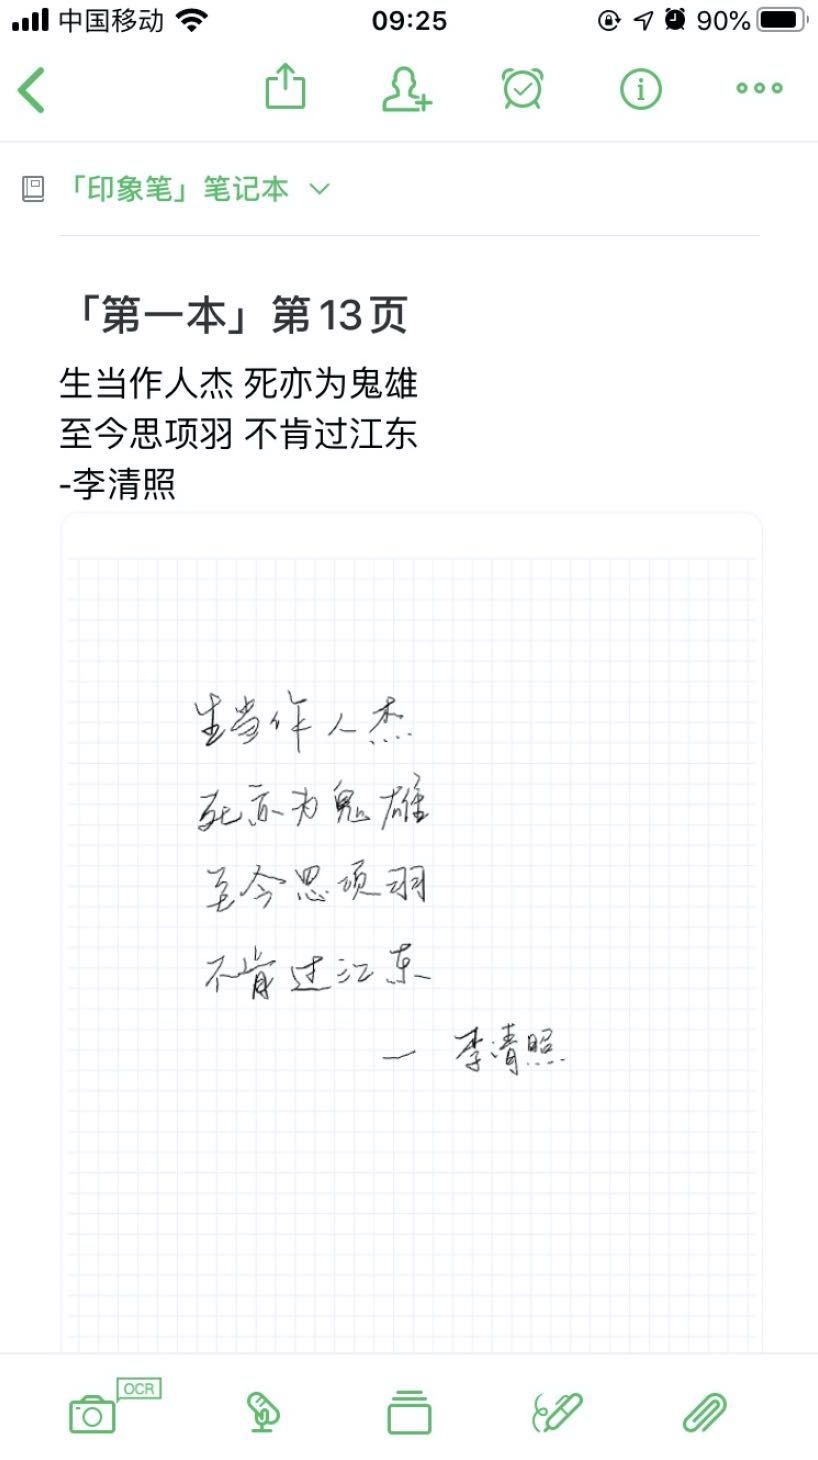 中国移动 09:25 90%
「印象笔」笔记本
「第一本」第13页
生当作人杰 死亦为鬼雄
至今思项羽 不肯过江东
-李清照
生当作人杰
死亦为鬼雄
至今思项羽
不肯过江东
— 李清照
OCR